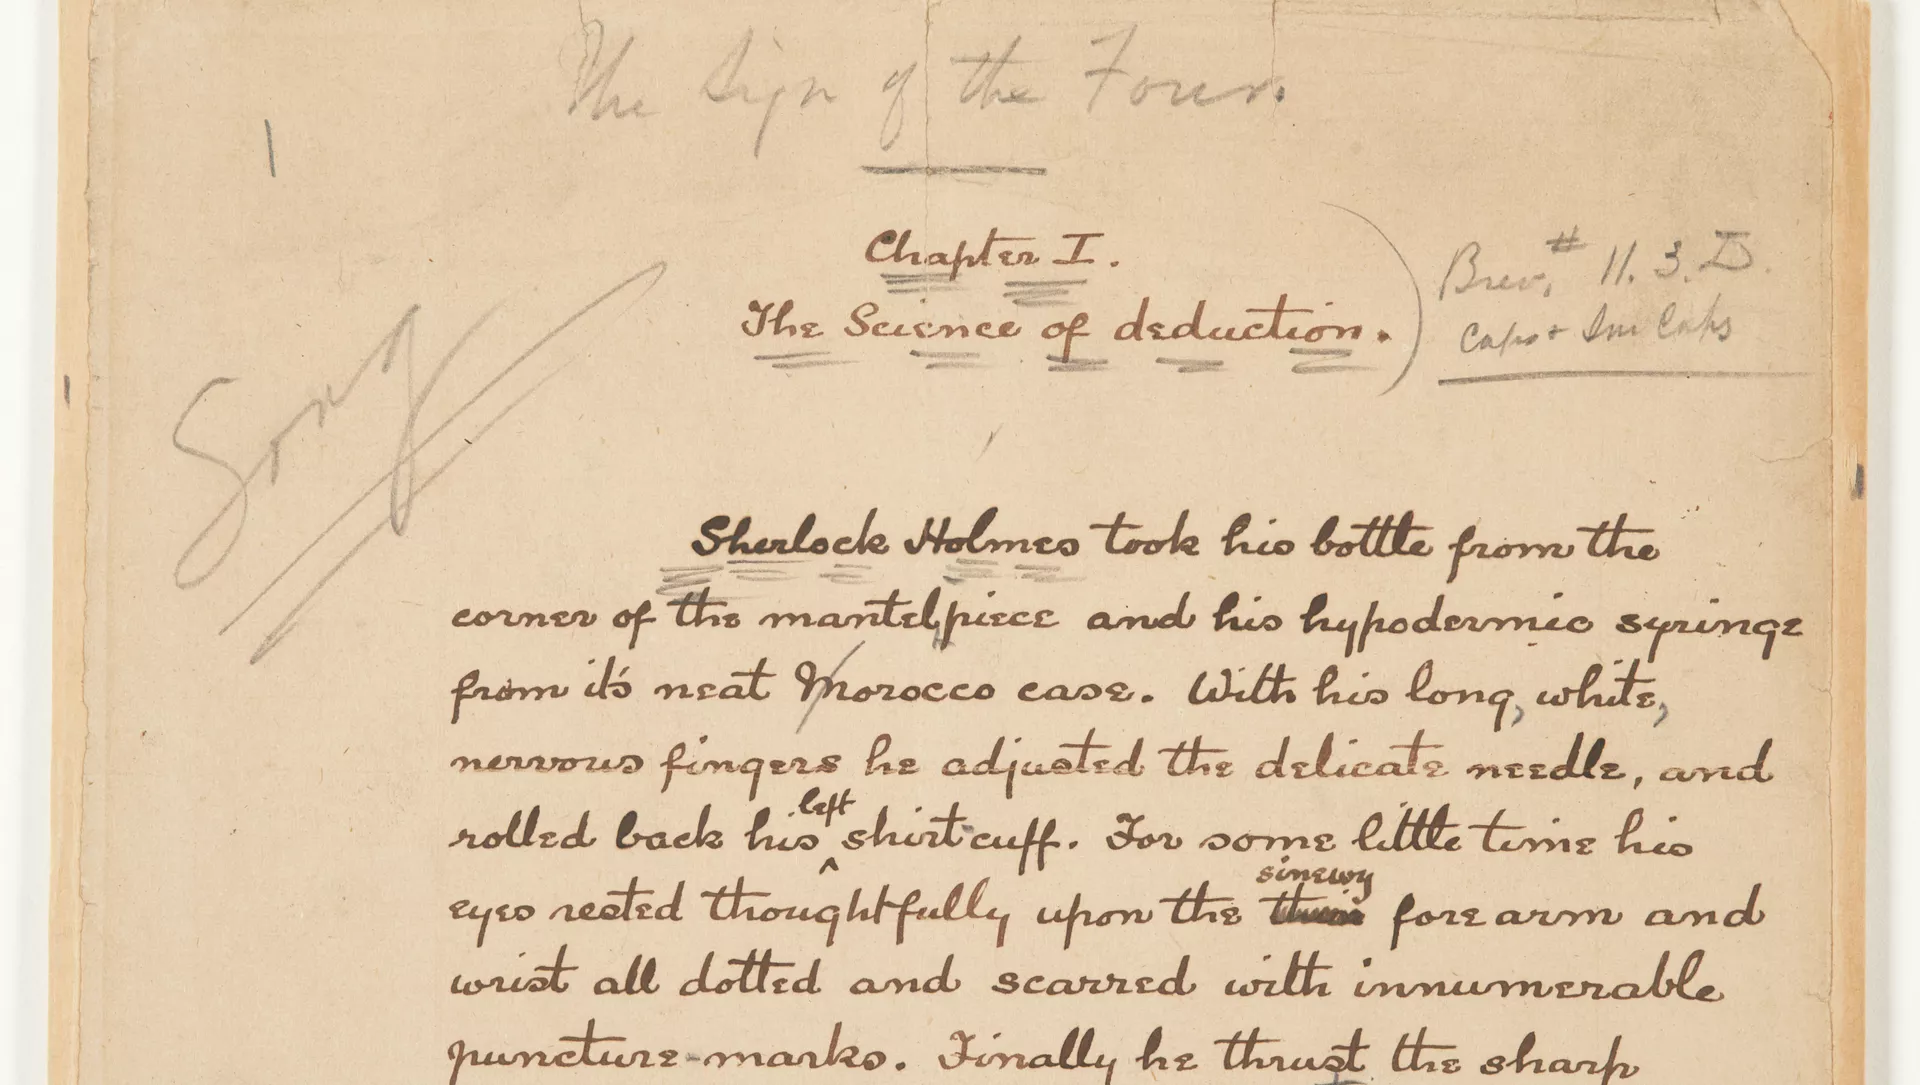 The Sign of the Four.
1
Chapter I.
Brev. # 11. 3. D.
The Science of deduction.
Caps + Sm Caps
Sherlock Holmes took his bottle from the
corner of the mantelpiece and his hypodermic syringe
from it's neat Morocco case. With his long, white,
nervous fingers he adjusted the delicate needle, and
rolled back his left shirt-cuff. For some little time his
eyes rested thoughtfully upon the sinewy forearm and
wrist all dotted and scarred with innumerable
puncture-marks. Finally he thrust the sharp